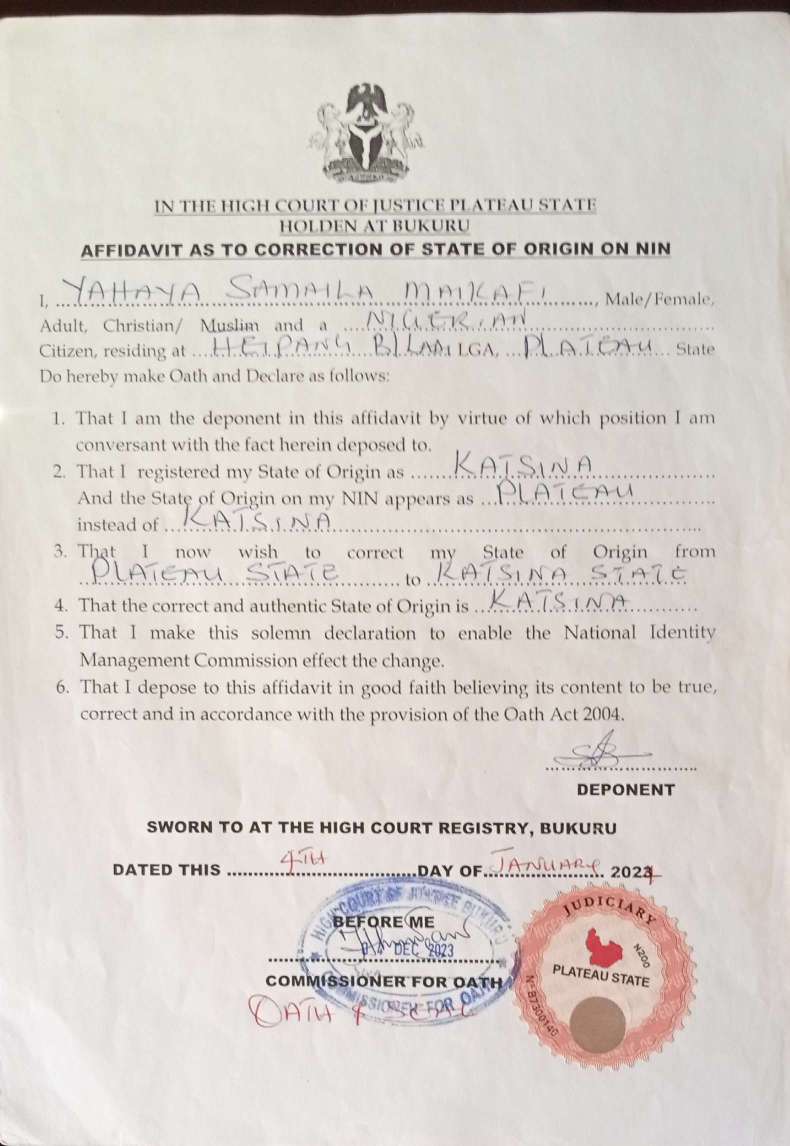 IN THE HIGH COURT OF JUSTICE PLATEAU STATE
HOLDEN AT BUKURU
AFFIDAVIT AS TO CORRECTION OF STATE OF ORIGIN ON NIN
I, YAHAYA SAMAILA MAIKAFI, Male/Female,
Adult, Christian/ Muslim and a NIGERIAN
Citizen, residing at HEIPANG B/LADI LGA, PLATEAU State
Do hereby make Oath and Declare as follows:
1. That I am the deponent in this affidavit by virtue of which position I am
conversant with the fact herein deposed to.
2. That I registered my State of Origin as KATSINA
And the State of Origin on my NIN appears as PLATEAU
instead of KATSINA
3. That I now wish to correct my State of Origin from
PLATEAU STATE to KATSINA STATE
4. That the correct and authentic State of Origin is KATSINA
5. That I make this solemn declaration to enable the National Identity
Management Commission effect the change.
6. That I depose to this affidavit in good faith believing its content to be true,
correct and in accordance with the provision of the Oath Act 2004.
DEPONENT
SWORN TO AT THE HIGH COURT REGISTRY, BUKURU
DATED THIS 4TH DAY OF JANUARY 2024
HIGH COURT OF JUSTICE BUKURU
BEFORE ME
DEC 2023
COMMISSIONER FOR OATH
COMMISSIONER FOR OATH
OATH & SEAL
JUDICIARY
N200
PLATEAU STATE